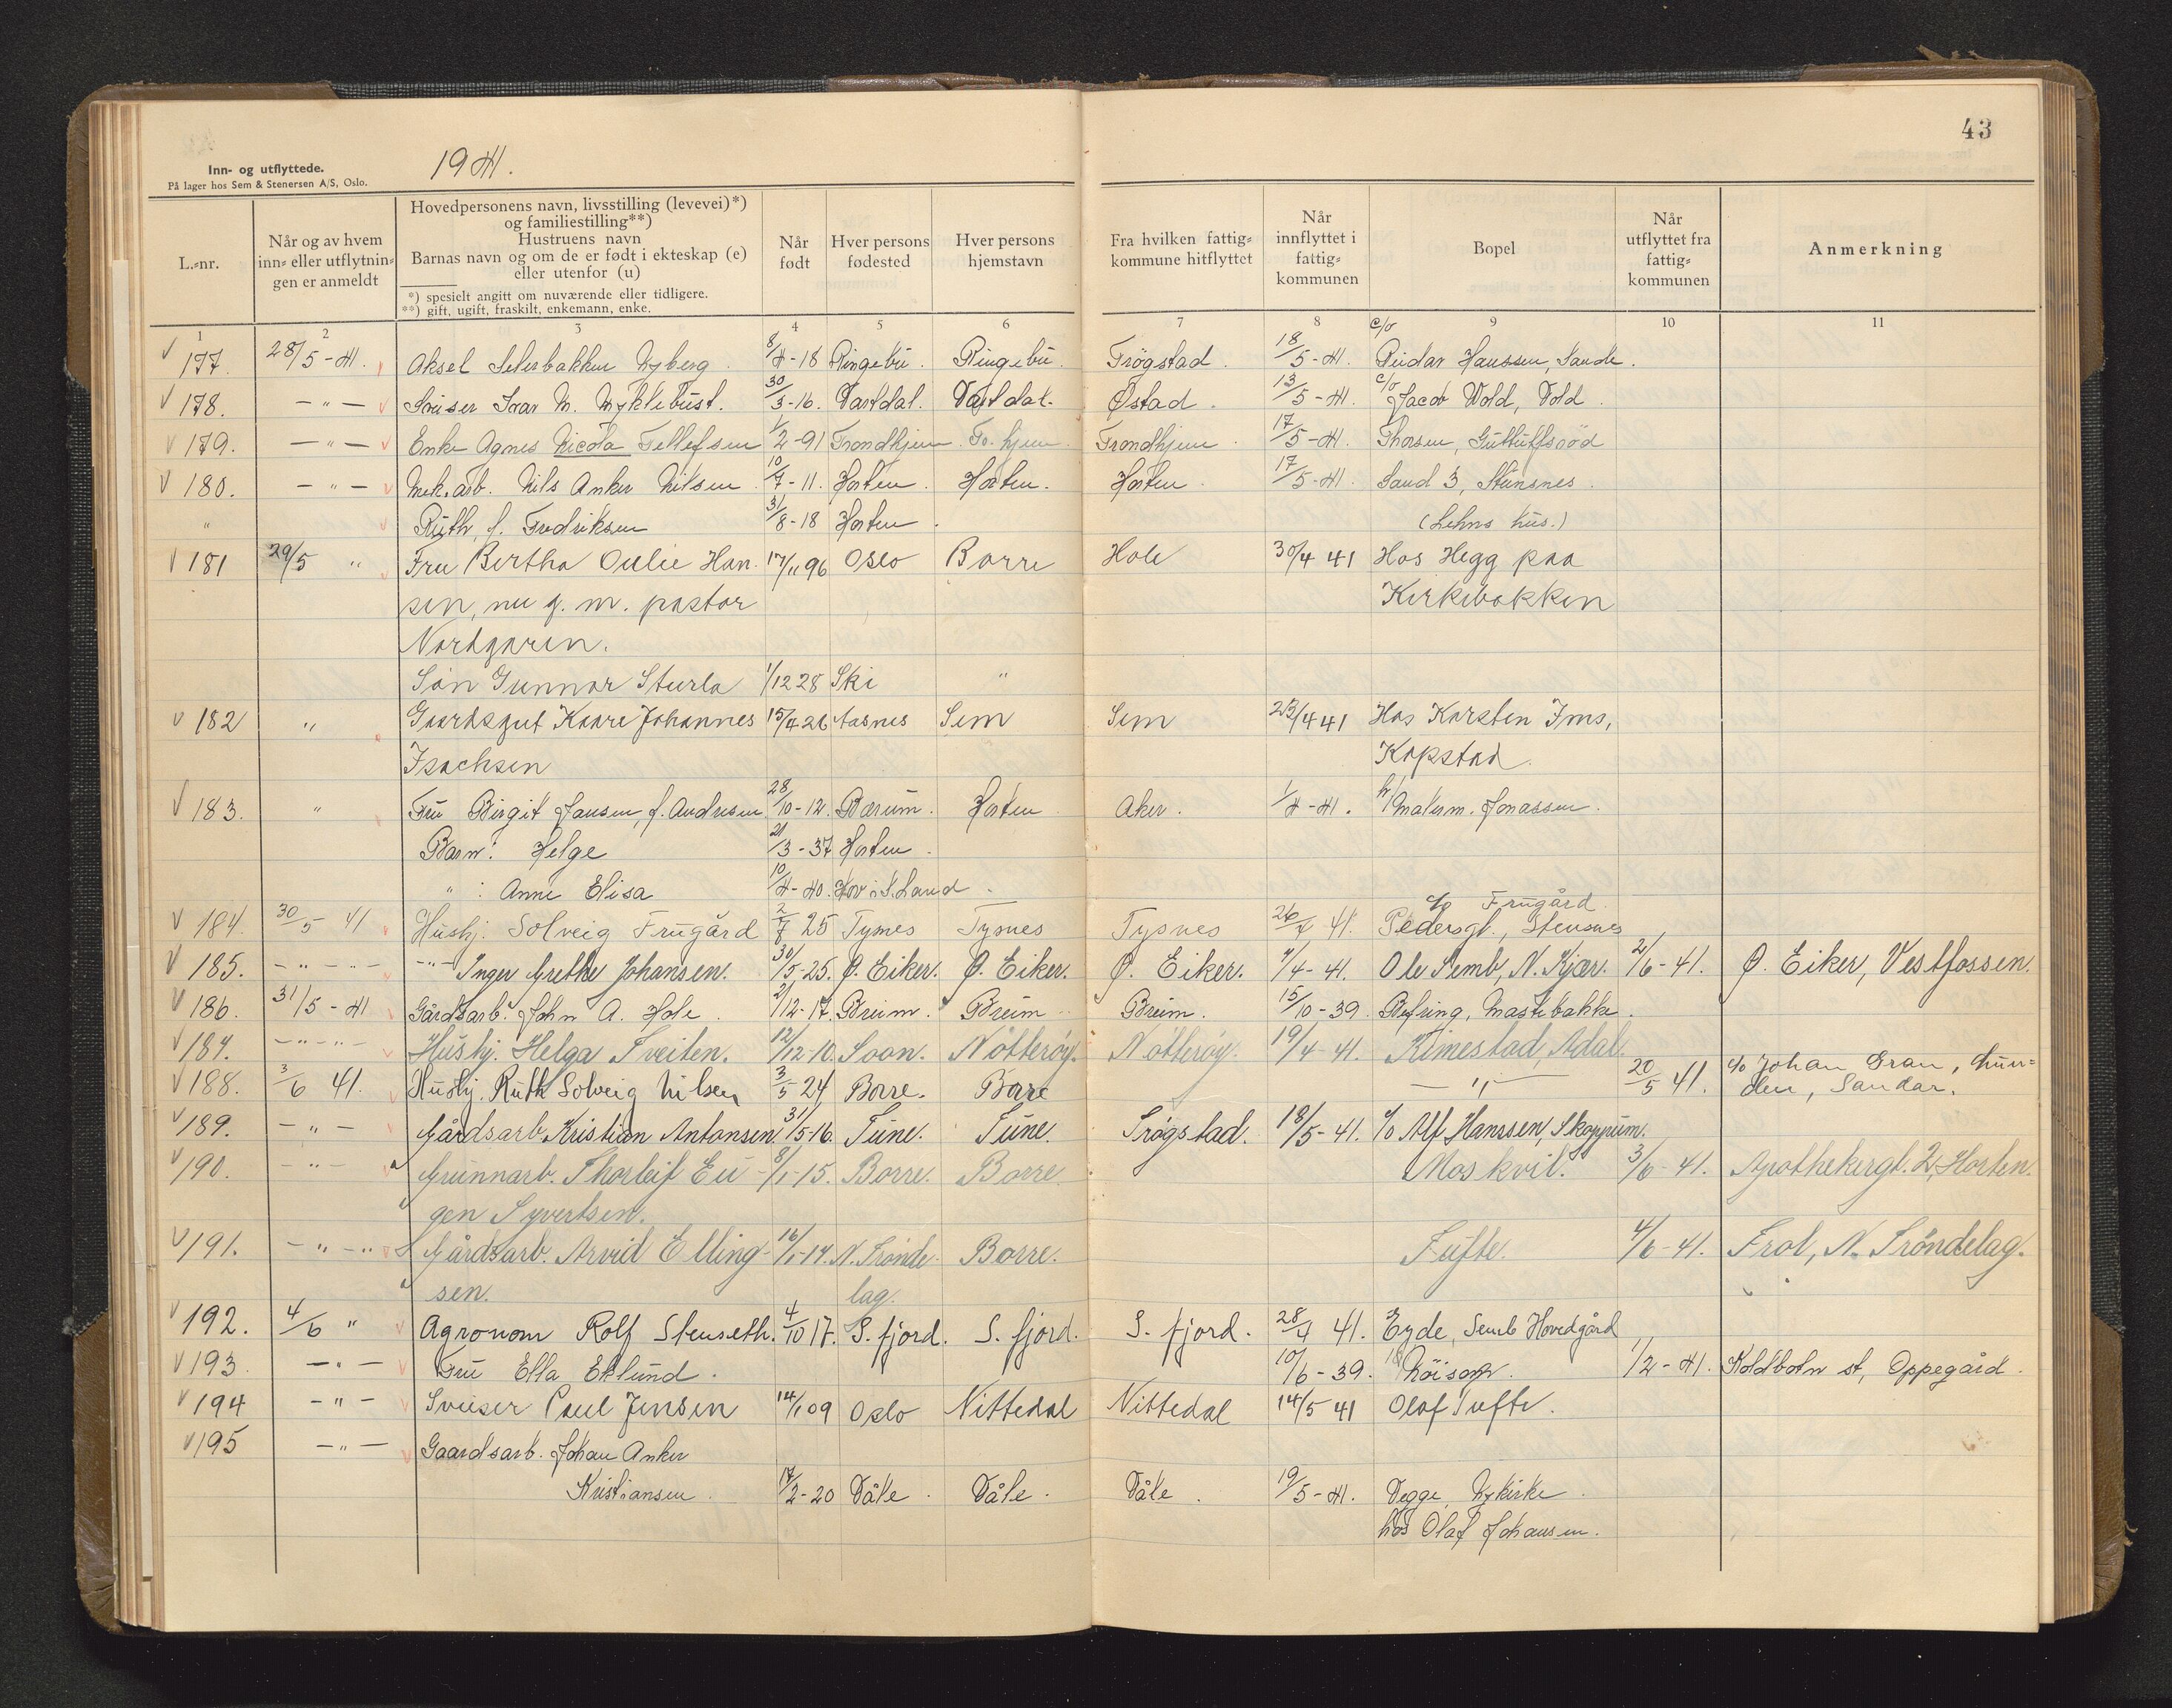 43
Inn- og utflyttede. 1941.
På lager hos Sem & Stenersen A/S, Oslo.
L.-nr. Når og av hvem inn- eller utflytningen er anmeldt Hovedpersonens navn, livsstilling (levevei)*) og familiestilling**) Hustruens navn Barnas navn og om de er født i ekteskap (e) eller utenfor (u) Når født Hver persons fødested Hver persons hjemstavn Fra hvilken fattig-kommune hitflyttet Når innflyttet i fattig-kommunen Bopel Når utflyttet fra fattig-kommunen Anmerkning
*) spesielt angitt om nuværende eller tidligere.
**) gift, ugift, fraskilt, enkemann, enke.
1 2 3 4 5 6 7 8 9 10 11
177. 28/5-41. Aksel Seterbakken Nyberg. 8/4-18 Ringebu. Ringebu. Trögstad. 18/5-41. c/o Reidar Hanssen, Sande.
178. -"- Sveiser Ivar M. Myklebust. 30/3-16. Vartdal. Vartdal. Østad. 13/5-41. c/o Jacob Wold, Vold.
179. -"- Enke Agnes Nicola Tellefsen 1/2-91 Trondhjem. Tr. hjem. Trondhjem. 17/5-41. Thorsen,
180. -"- Mek. arb. Nils Anker Nilsen 10/7-11. Horten. Horten. Horten. 17/5-41. Sand 3, Steinsnes.
" Ruth, f. Fredriksen 31/8-18 Horten. (Lehns hus.)
181 29/5 " Fru Bertha Oulie Han- 17/11 96 Oslo Borre Hole 30/4 41 Hos Hegg paa
sen, nu g. m. pastor Kirkebakken
Nordgaren.
Sön Gunnar Sturla 1/12 28 Ski "
182 " Gaardsgut Kaare Johannes 15/4 26 Aasnes Sem Sem 23/4 41 Hos Karsten Ims,
Isachsen Kopstad.
183. " Fru Birgit Jansen, f. Andresen 28/10-12. Bærum. Horten Aker. 1/4-41. h/ Malerm. Jonassen.
Barn: Helge 21/3-37 Horten.
" : Anne Elisa 10/4-40. Hov i S. Land.
184. 30/5 41 Hushj. Solveig Frugård 2/7 25 Tysnes Tysnes Tysnes 26/4 41. c/o Frugård Pedersgt., Stensnes
185. -"-"- -"- Inger Grethe Johansen. 30/5-25. Ø. Eiker. Ø. Eiker. Ø. Eiker. 1/4-41. Ole Semb, N. Kjær. 2/6-41. Ø. Eiker, Vestfossen.
186. 31/5-41 Gårdsarb. John A. Hole. 2/12-17. Breim. Breim. Breim. 15/10-39. Befring, Mastebakke.
187. -"-"- Hushj. Helga Tveiten. 12/12-10. Soon. Nötteröy. Nötteröy. 19/4-41. Kimestad, Adal.
188. 3/6 41. Hushj. Ruth Solveig Nilsen 3/5 24 Borre. Borre -"- 20/5 41. c/o Johan Gran,
Sandar.
189. -"- Gårdsarb. Kristian Antonsen. 31/5-16. Tune. Tune. Trögstad. 18/5-41. c/o Alf Hanssen, Skoppum.
190. -"- Grunnarb. Thorleif Eu- 8/1-15. Borre. Borre. Moskvil. 3/6-41. Apothekergt. 2, Horten.
gen Syvertsen.
191. -"-" Gårdsarb. Arvid Elling- 16/1-14. N. Trönde- Borre. Tufte. 4/6-41. Frol, N. Tröndelag.
sen. lag.
192. 4/6 " Agronom Rolf Stenseth. 4/10 17. S. fjord. S. fjord. S. fjord. 28/4 41. Eyde, Semb Hovedgård
193. -"- Fru Ella Eklund. 10/6-39. 1/2-41. Koldbotn st, Oppegård.
194 -"- Sveiser Paul Jensen 14/1 09 Oslo Nittedal Nittedal 14/5 41 Olaf Tufte.
195 -"- Gaardsarb. Johan Anker
Kristiansen. 17/2-20 Våle. Våle. Våle. 19/5-41. Vegge, Nykirke.
hos Olaf Johansen.